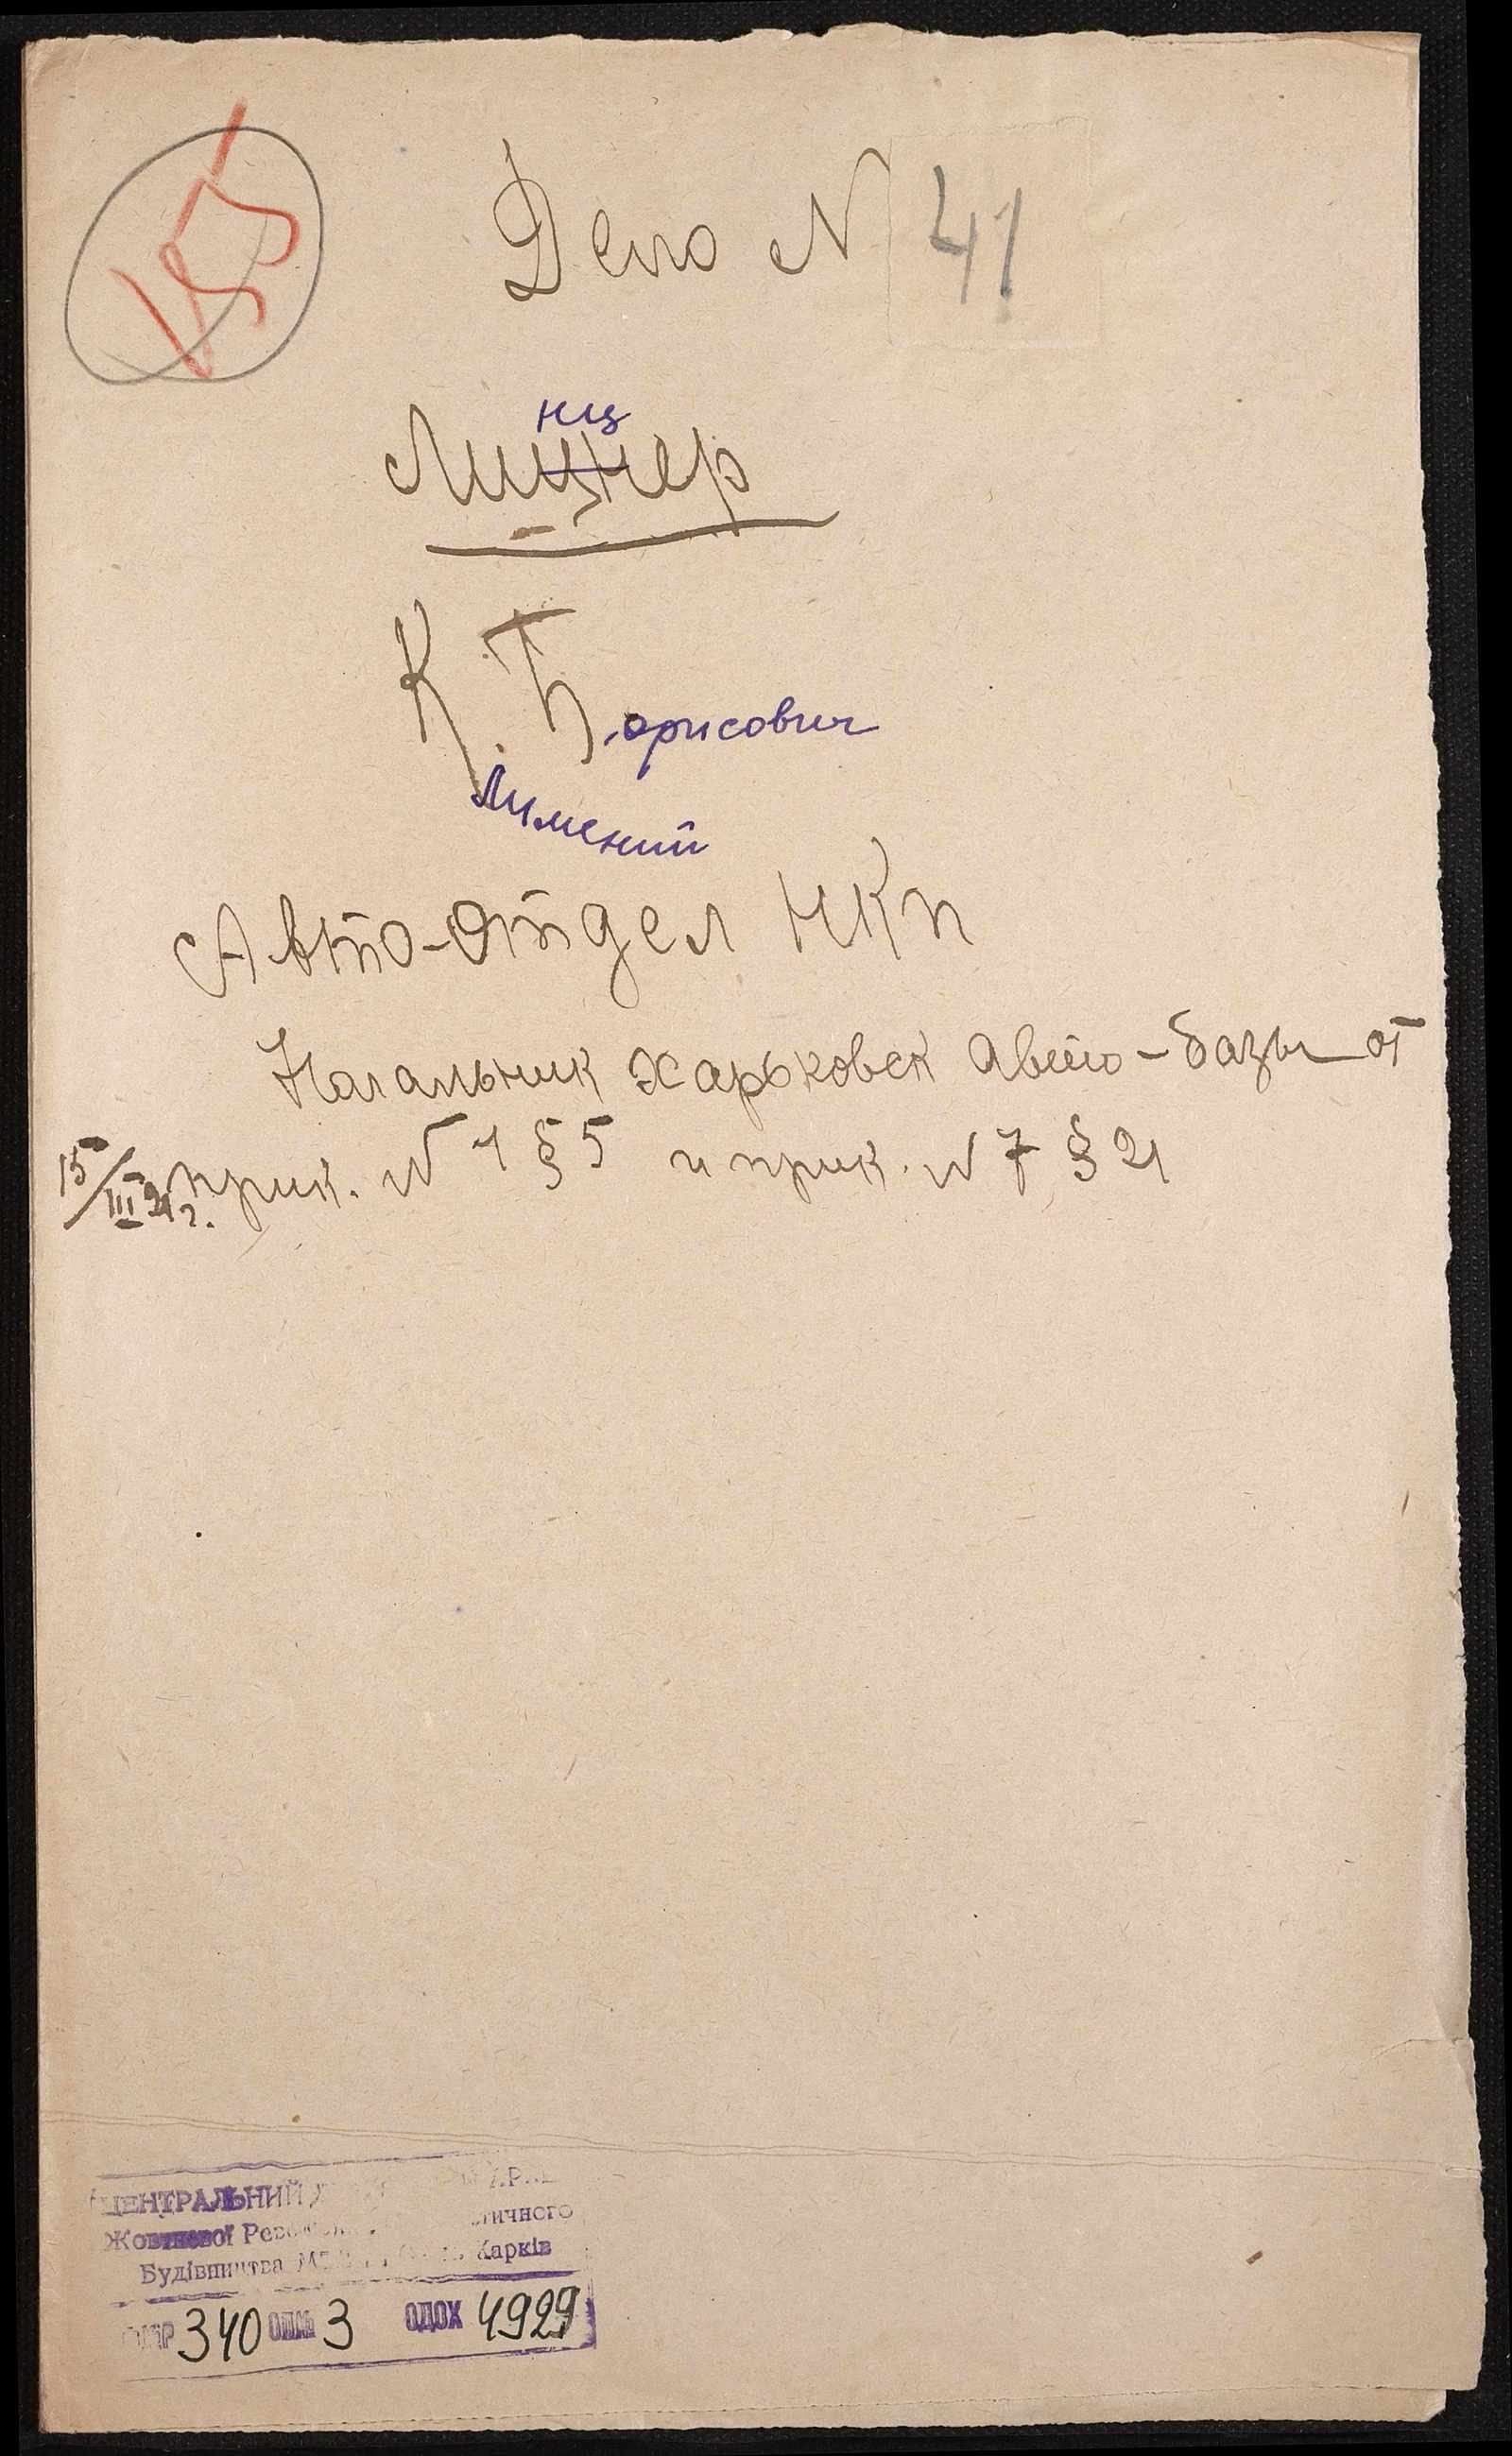 155
Дело N 41
нц
Лицнер
К. Борисович
лимений
Авто-отдел НКП
Началник Харьковск Авто-базы от
15/III 21 г. прик. N 1 § 5 и прик. N 7 § 21
ЦЕНТРАЛЬНИЙ
Жовтневої
Будівництва Харків
340 3 ОДОХ 4929